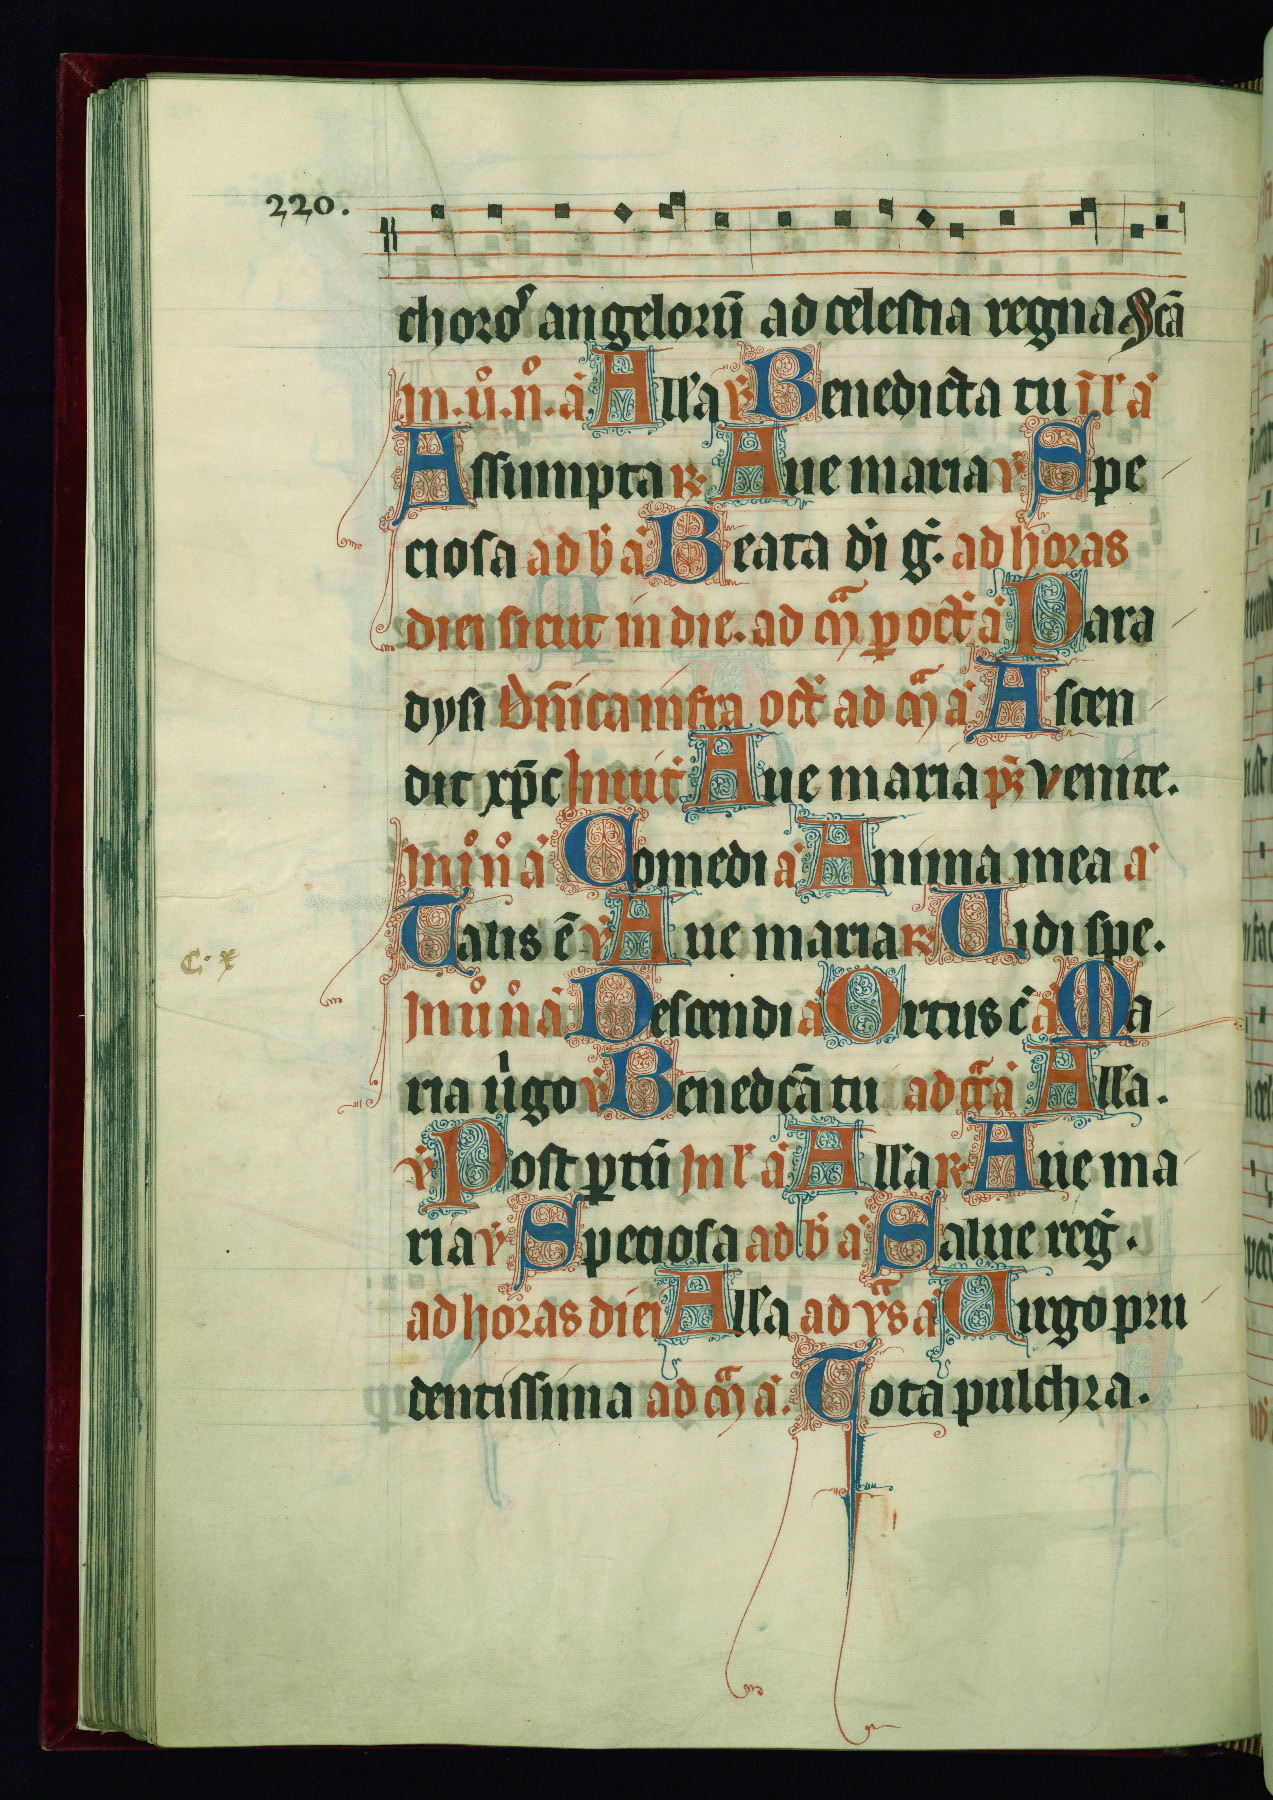 220.
choro℣ angelorū ad celestia regna Scā
In .ii. n̊. a̍. Alla ℣ Benedicta tu i l' a̍
Assumpta ℟ Aue maria ℣ Spe
ciosa ad b̍ a̍ Beata di g̍. ad horas
diei sicut in die. ad m̄ p oct̄ a̍ Para
dysi Dn̄ica infra oct̄ ad m̄ a̍ Ascen
dit xp̄c Inuit̄ Aue maria ps̄ venite.
In i n̊ a̍ Comedi a̍ Anima mea a̍
Talis ē ℣ Aue maria ℟ Uidi spe.
In ii̊ n̊ a̍ Descendi a̍ Ortus c̄ a̍ Ma
ria u̍go ℣ Benedcā tu ad c̄a a̍ Alla.
℣ Post ptū In l' a̍ Alla ℟ Aue ma
ria ℣ Speciosa ad b̍ a̍ Salue reg̍.
ad horas diei Alla ad v̄s a̍ Uirgo pru
dentissima ad m̄ a̍. Tota pulchra.